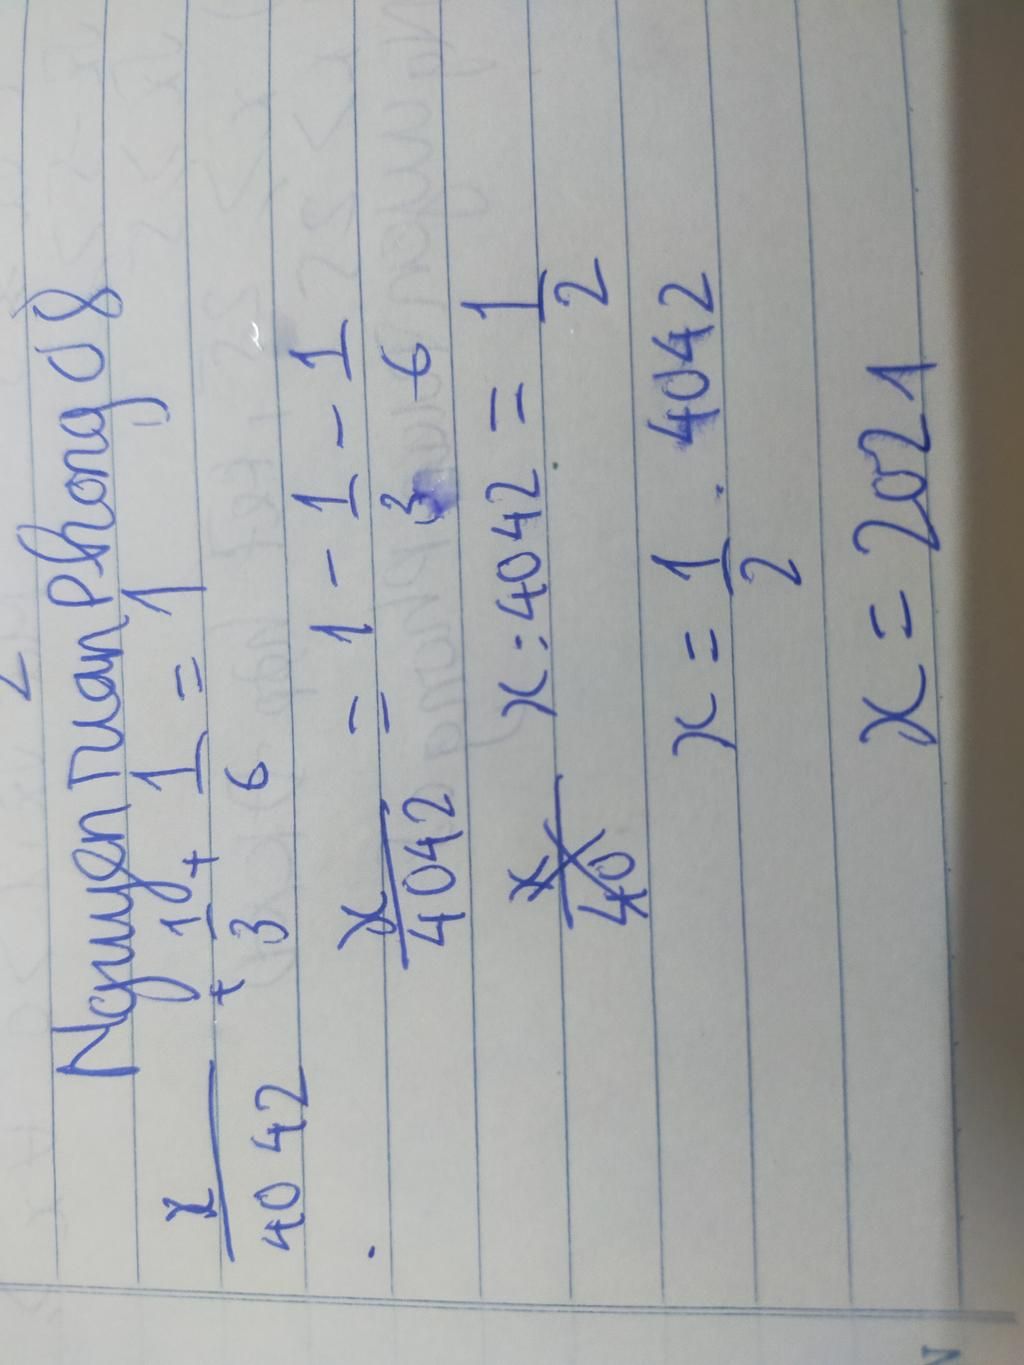 Nguyen Tuan Phong J8
x/4042 + 1/3 + 1/6 = 1
x/4042 = 1 - 1/3 - 1/6
x : 4042 = 1/2
x = 1/2 . 4042
x = 2021